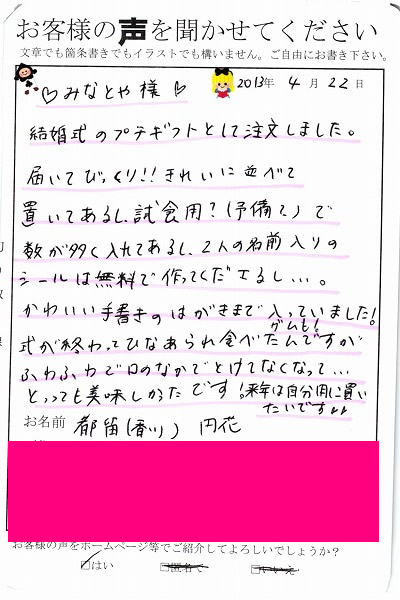 お客様の声を聞かせてください
文章でも箇条書きでもイラストでも構いません。ご自由にお書き下さい。
2013年 4月 22日
♡みなとや様♡
結婚式のプチギフトとして注文しました。
届いてびっくり!!きれいに並べて
置いてあるし、試食用?(予備?)で
数が多く入れてあるし、2人の名前入りの
シールは無料で作ってくださるし…。
かわいい手書きのはがきまで入っていました!
グムも!
式が終わってひなあられ食べたんですが
ふわふわで口のなかでとけてなくなって…
とっても美味しかったです!来年は自分用に買い
たいです♪♪
お名前 都留(香川) 円花
お客様の声をホームページ等でご紹介してよろしいでしょうか?
□はい □匿名で □いいえ